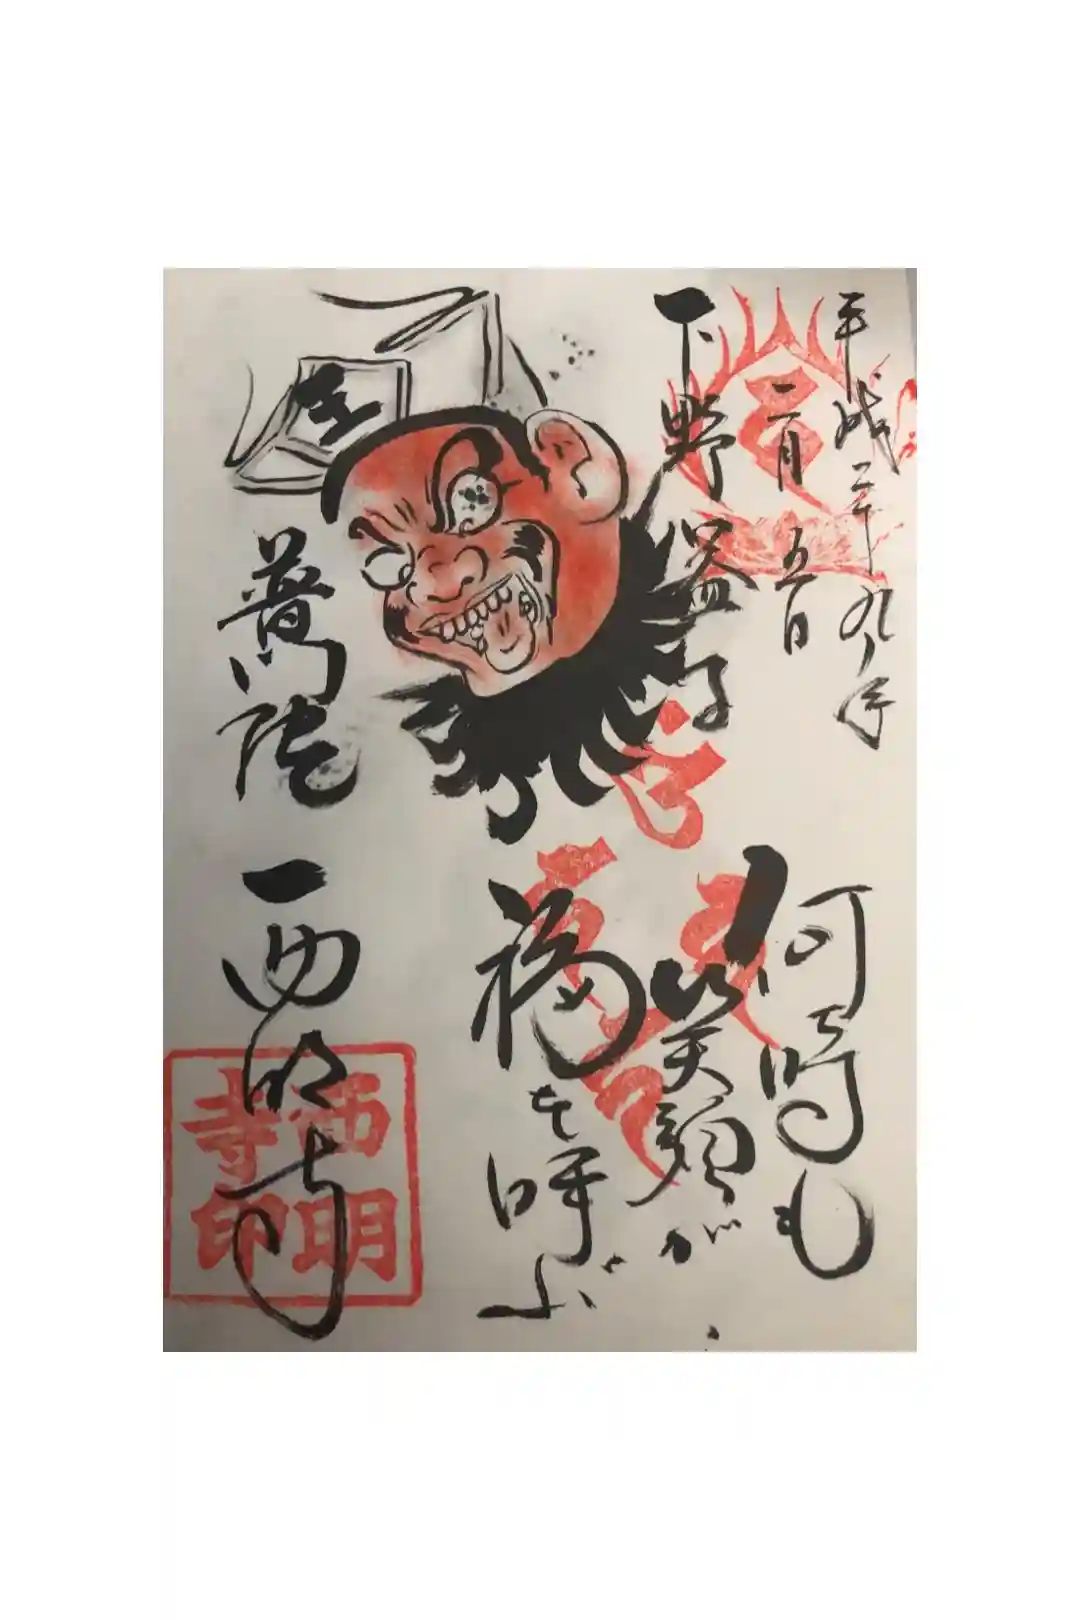 平成二十九年
二月五日
下野 益子
何時も
笑顔が
福を呼ぶ
王
普門院
西明寺
西明
寺印